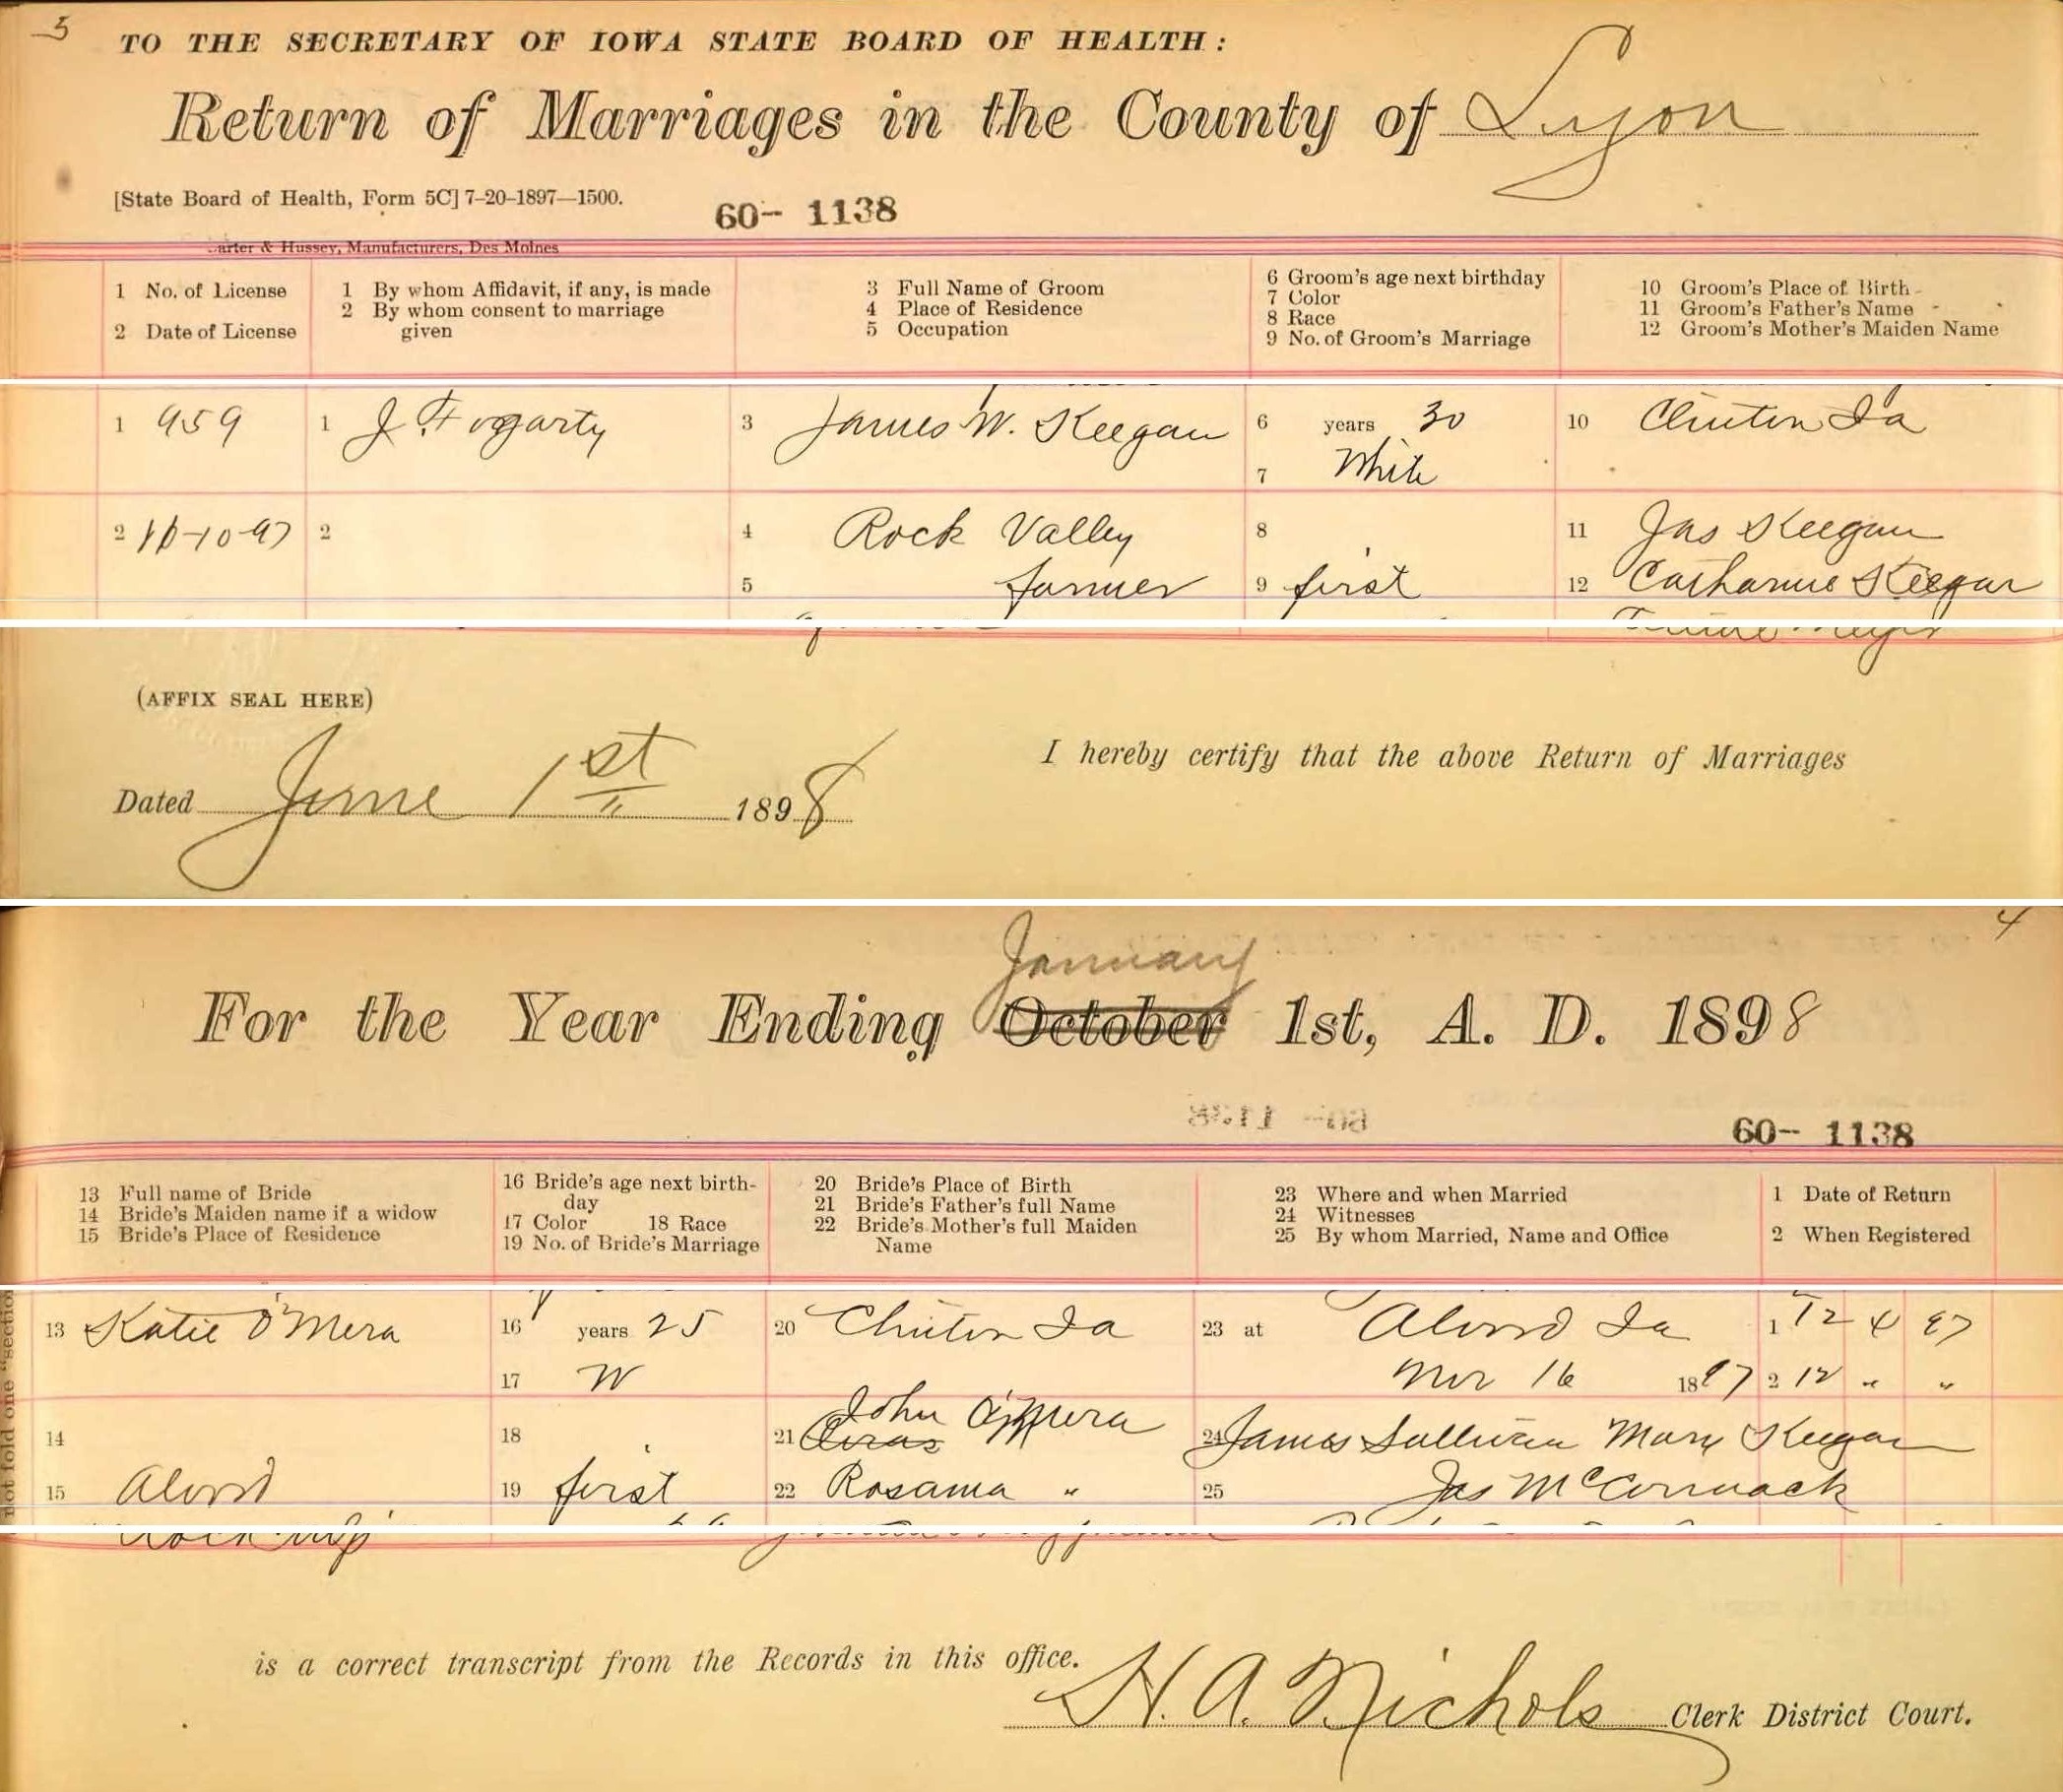 5
TO THE SECRETARY OF IOWA STATE BOARD OF HEALTH:
Return of Marriages in the County of Lyon
[State Board of Health, Form 5C] 7-20-1897—1500.
60- 1138
arter & Hussey, Manufacturers, Des Moines
1 No. of License
2 Date of License
1 By whom Affidavit, if any, is made
2 By whom consent to marriage
given
3 Full Name of Groom
4 Place of Residence
5 Occupation
6 Groom's age next birthday
7 Color
8 Race
9 No. of Groom's Marriage
10 Groom's Place of Birth
11 Groom's Father's Name
12 Groom's Mother's Maiden Name
1 959 1 J. Fogarty 3 James W. Keegan 6 years 30 10 Clinton Ia
7 White
2 -10-97 2 4 Rock Valley 8 11 Jas Keegan
5 farmer 9 first 12 Catharine Keegan
(AFFIX SEAL HERE)
I hereby certify that the above Return of Marriages
Dated June 1st 1898
4
January
For the Year Ending October 1st, A. D. 1898
60- 1138
60- 1138
13 Full name of Bride
14 Bride's Maiden name if a widow
15 Bride's Place of Residence
16 Bride's age next birth-
day
17 Color 18 Race
19 No. of Bride's Marriage
20 Bride's Place of Birth
21 Bride's Father's full Name
22 Bride's Mother's full Maiden
Name
23 Where and when Married
24 Witnesses
25 By whom Married, Name and Office
1 Date of Return
2 When Registered
13 Katie O'Mera 16 years 25 20 Clinton Ia 23 at Alvord Ia 1 12 4 97
17 W Nov 16 1897 2 12 " "
14 18 21 John O'Mera 24 James Sullivan Mary Keegan
15 Alvord 19 first 22 Rosanna " 25 Jas McCormack
is a correct transcript from the Records in this office.
H. A. Nichols Clerk District Court.